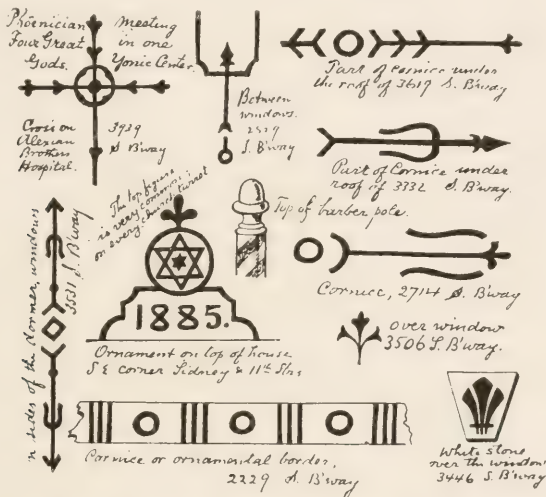 Phoenician
Four Great
Gods.
Meeting
in one
Yonic Center.
Cross on
Alexian
Brothers
Hospital.
3939
S B'way
Between
windows.
2329
S. B'way
Part of Cornice under
the roof of 3619 S. B'way
Part of Cornice under
roof of 3332 S. B'way.
The top figure
is very common:
on every church turret
Top of barber pole.
Cornice, 2714 S. B'way
n sides of the dormer, windows
3531 S. B'way
1885.
Ornament on top of house
S E corner Sidney & 11th Strs
over window
3506 S. B'way.
Cornice or ornamental border,
2229 S. B'way
White stone
over the window
3446 S. B'way